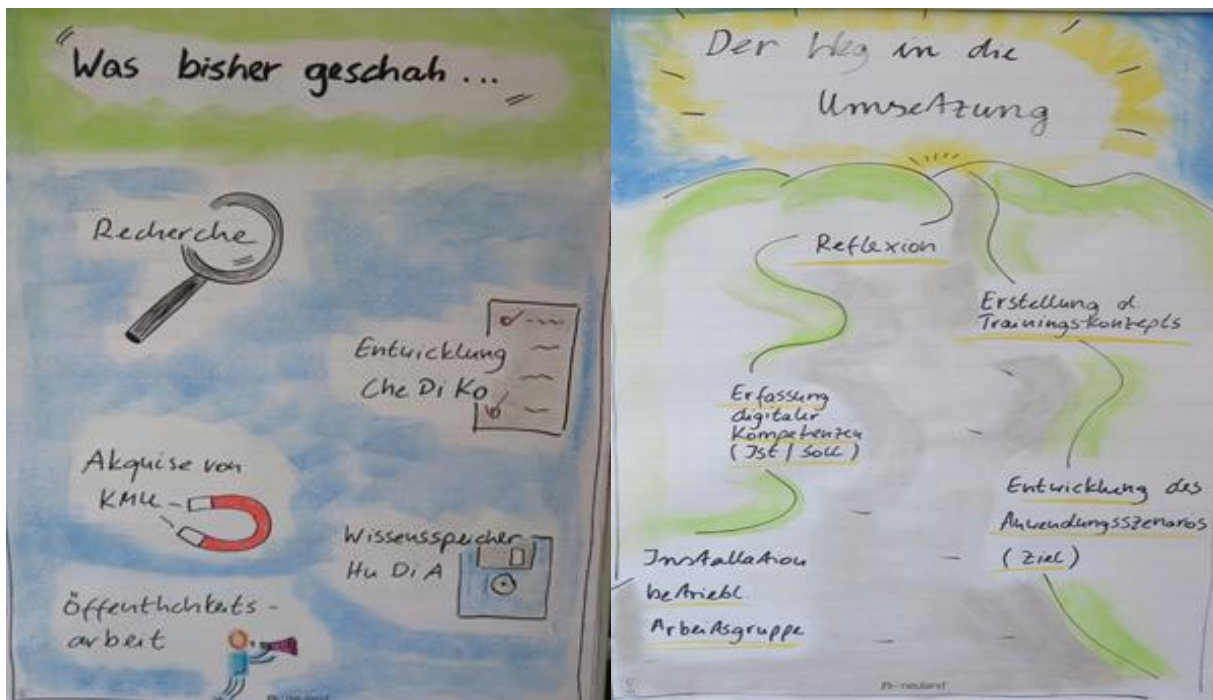 "Was bisher geschah ..."
Recherche
Entwicklung
Che Di Ko
Akquise von
KMU
Wissensspeicher
Hu Di A
Öffentlichkeits-
arbeit
neuland
Der Weg in die
Umsetzung
Reflexion
Erstellung d.
Trainingskonzepts
Erfassung
digitaler
Kompetenzen
(Ist / Soll)
Entwicklung des
Anwendungsszenarios
(Ziel)
Installation
betriebl.
Arbeitsgruppe
neuland